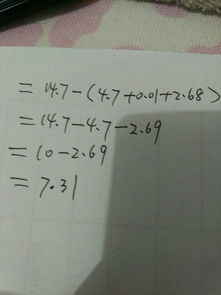 = 14.7-(4.7+0.01+2.68)
= 14.7-4.7-2.69
= 10-2.69
= 7.31